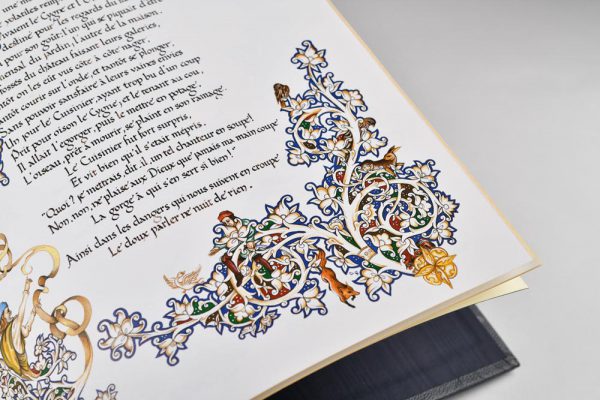 volatiles rempl
vaient le Cygne et l'
destiné pour les regards du m
pour son goût: l'un qui se piquait d'être
mensal du jardin, l'autre de la maison.
fossés du château faisant leurs galeries,
tôt on les eût vus côte à côte nager,
antôt courir sur l'onde, et tantôt se plonger,
ans pouvoir satisfaire à leurs vaines envies
jour le Cuisinier, ayant trop bu d'un coup
Prit pour oison le Cygne, et le tenant au cou,
Il allait l'égorger, puis le mettre en potage.
L'oiseau, prêt à mourir, se plaint en son ramage.
Le Cuisinier fut fort surpris,
Et vit bien qu'il s'était mépris.
"Quoi? je mettrais, dit-il, un tel chanteur en soupe!
Non, non, ne plaise aux Dieux que jamais ma main coupe
La gorge à qui s'en sert si bien!"
Ainsi dans les dangers qui nous suivent en croupe
Le doux parler ne nuit de rien.